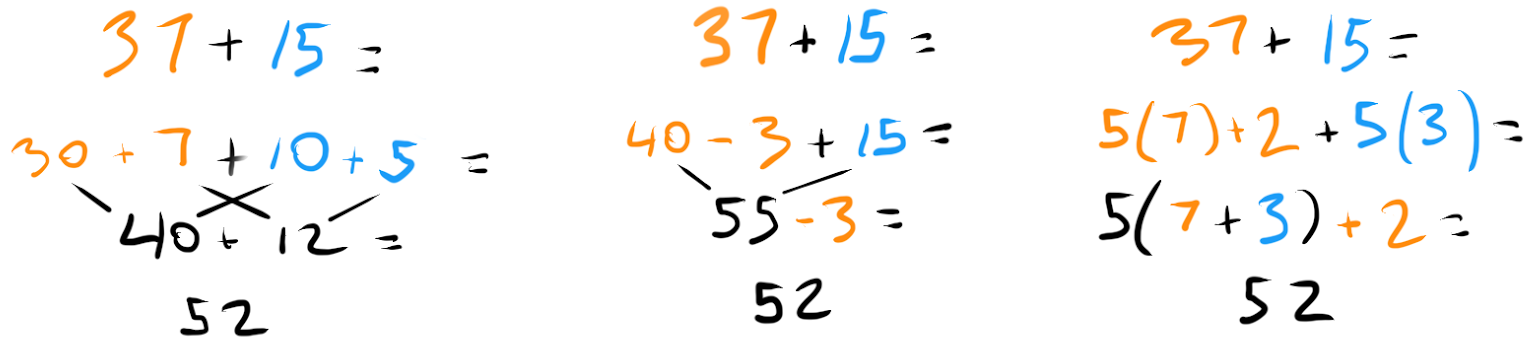 37 + 15 =
30 + 7 + 10 + 5 =
40 + 12 =
52
37 + 15 =
40 - 3 + 15 =
55 - 3 =
52
37 + 15 =
5(7) + 2 + 5(3) =
5(7 + 3) + 2 =
52